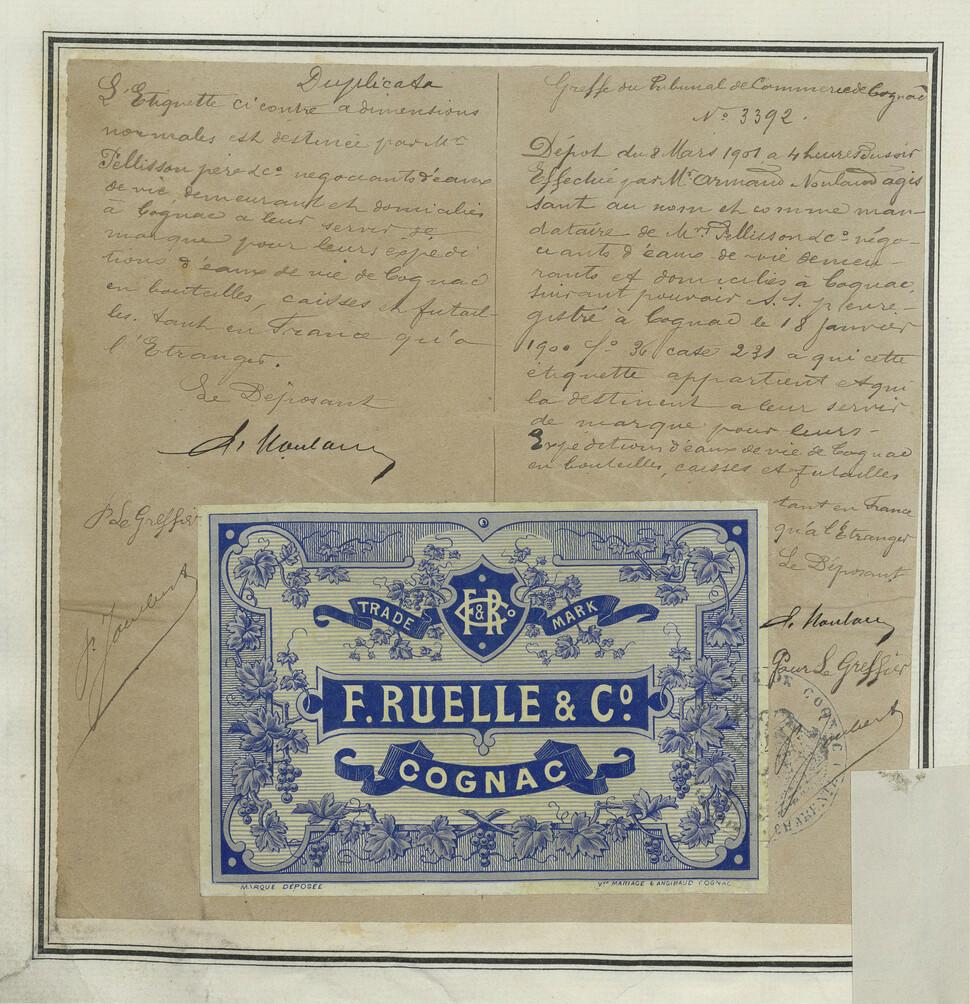 Duplicata
L'Etiquette ci contre a dimensions
normales est destinée par Mrs
Pellisson père & Co négociants d'eaux
de vie demeurant et domiciliés
à Cognac a leur servir de
marque pour leurs expédi
tions d'eaux de vie de Cognac
en bouteilles, caisses et futail-
les. tant en France qu'à
l'Etranger.
Le Déposant
P. Le Greffier
Greffe du Tribunal de Commerce de Cognac
No. 3392.
Dépot du 8 Mars 1901 a 4 heures du soir
Effectué par Mr Armand agis
sant au nom et comme man-
dataire de Mrs Pellisson & Co négo-
ciants d'eaux de vie demeu-
rants et domiciliés à Cognac,
suivant pouvoir S. S. p. enre-
gistré à Cognac le 18 Janvier
1900 fo 36 case 231 a qui cette
étiquette appartient et qui
la destinent a leur servir
de marque pour leurs-
Expéditions d'eaux de vie de Cognac
en bouteilles, caisses et futailles
tant en France
qu'à l'Etranger
Le Déposant
Pour Le Greffier
TRADE MARK
F. RUELLE & Co.
COGNAC
MARQUE DÉPOSÉE
Vve MARIAGE & ANGIBAUD COGNAC